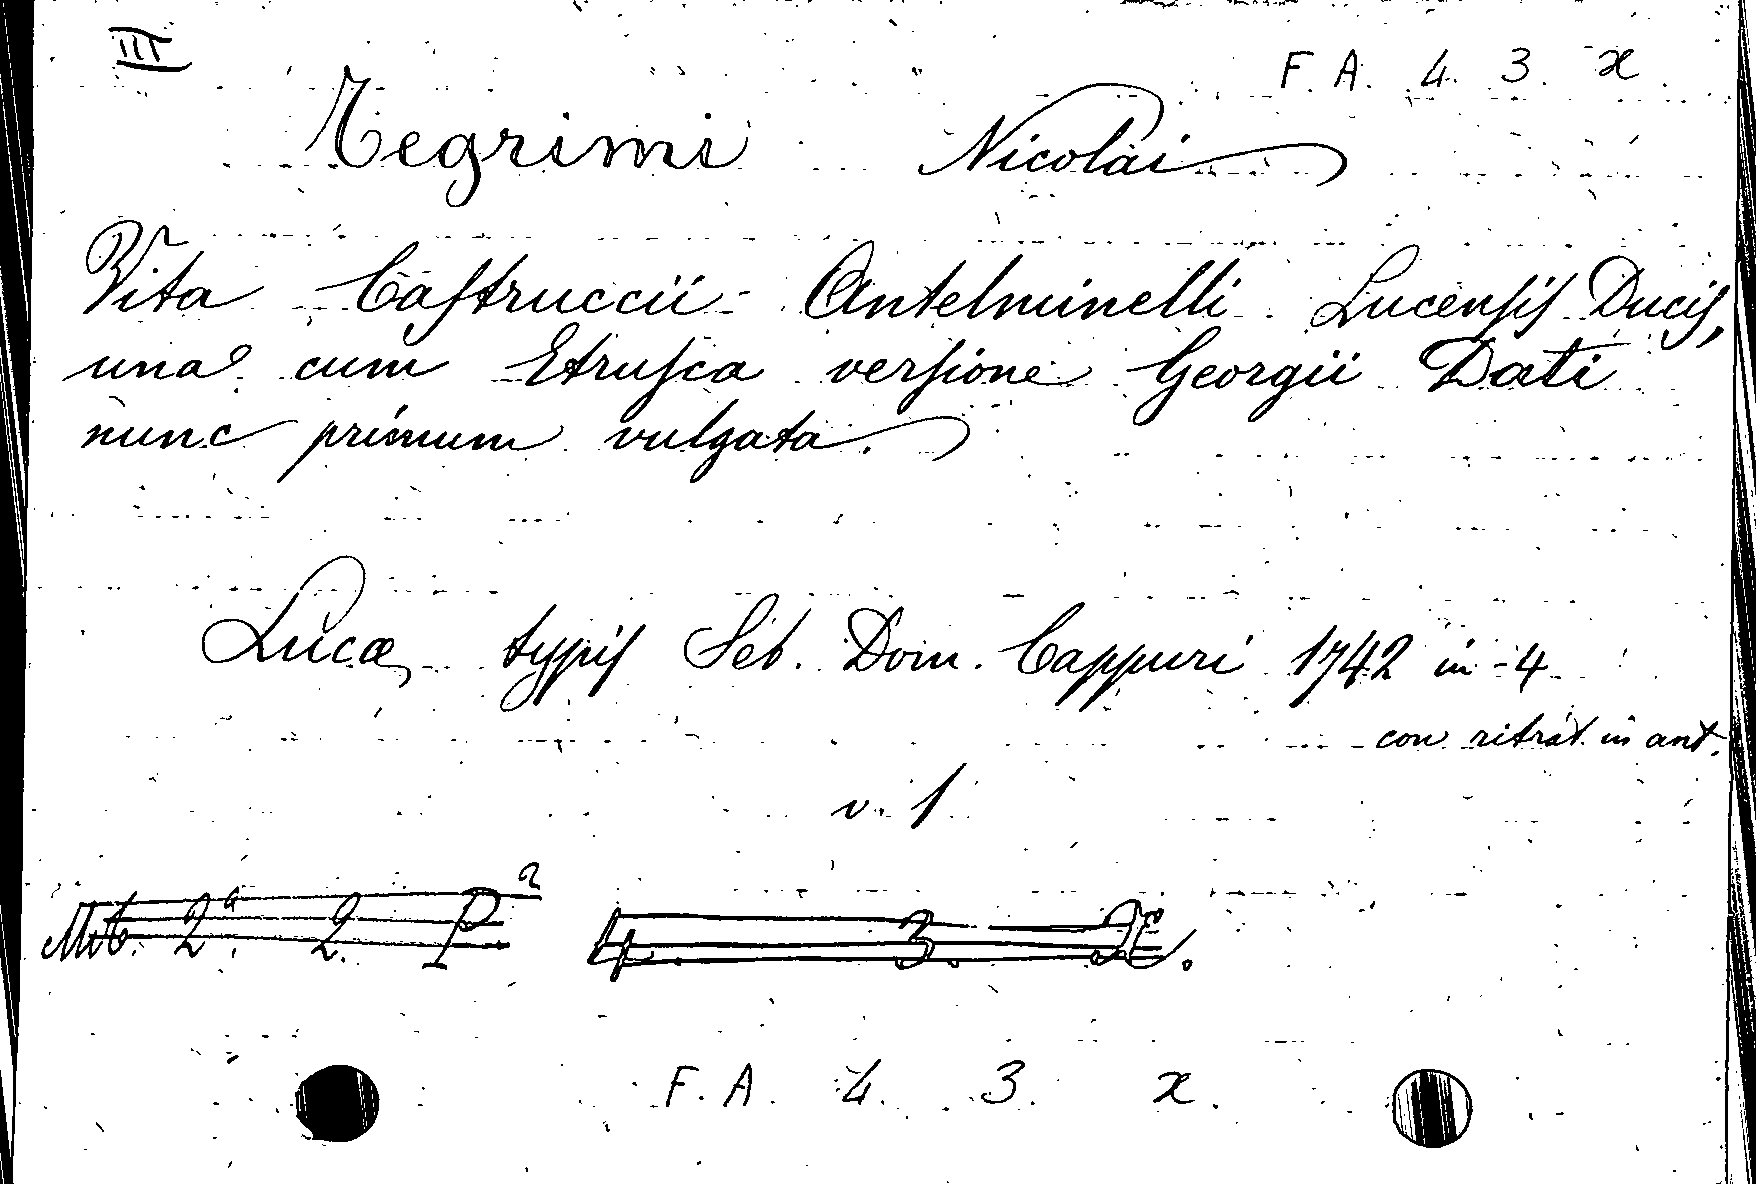 III
F. A. 4. 3. x.
Tegrimi Nicolai
Vita Caſtruccii Antelminelli Lucenſiſ Duciſ,
una cum Etruſca verſione Georgii Dati
nunc primum vulgata.
Lucæ, typiſ Seb. Dom. Cappuri 1742 in-4
con ritrat. in ant.
v. 1
2ª. 2. P. 2 4. 3. X.
F. A. 4. 3. x.